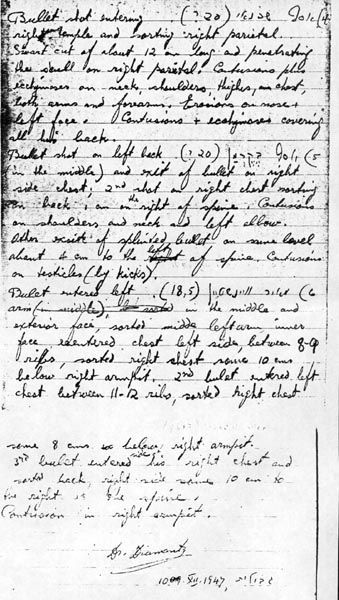 Bullet shot entering (? 20)
right temple and sorting right parietal.
Sward cut of about 12 cm long and penetrating
the scull on right parietal. Contusions plus
ecchymoses on neck, shoulders, thighes, on chest,
both arms and forearm. Erosions on nose +
left face. Contusions + ecchymoses covering
all his back.
Bullet shot on left back (? 20) (5
(in the middle) and exit of bullet on right
side chest; 2nd shot on right chest sorting
on back, on the right of spine. Contusions
on shoulders and neck and left elbow.
Other exit of splinted bullet on same level
about 4 cm to the left of spine. Contusions
on testicles (by kicks).
Bulet entered left (18,5) (6
arm (in middle), in the middle and
exterior face, sorted middle left arm, inner
face reentered chest left side, between 8-9
ribs, sorted right chest some 10 cms
below right armpit. 2nd bulet entered left
chest between 11-12 ribs, sorted right chest
some 8 cms. below right armpit.
3rd bulet entered his right chest and
sorted back, right side some 10 cm to
the right of the spine.
Contusion in right armpit.
Dr. Diamantz
10 XII.1947,